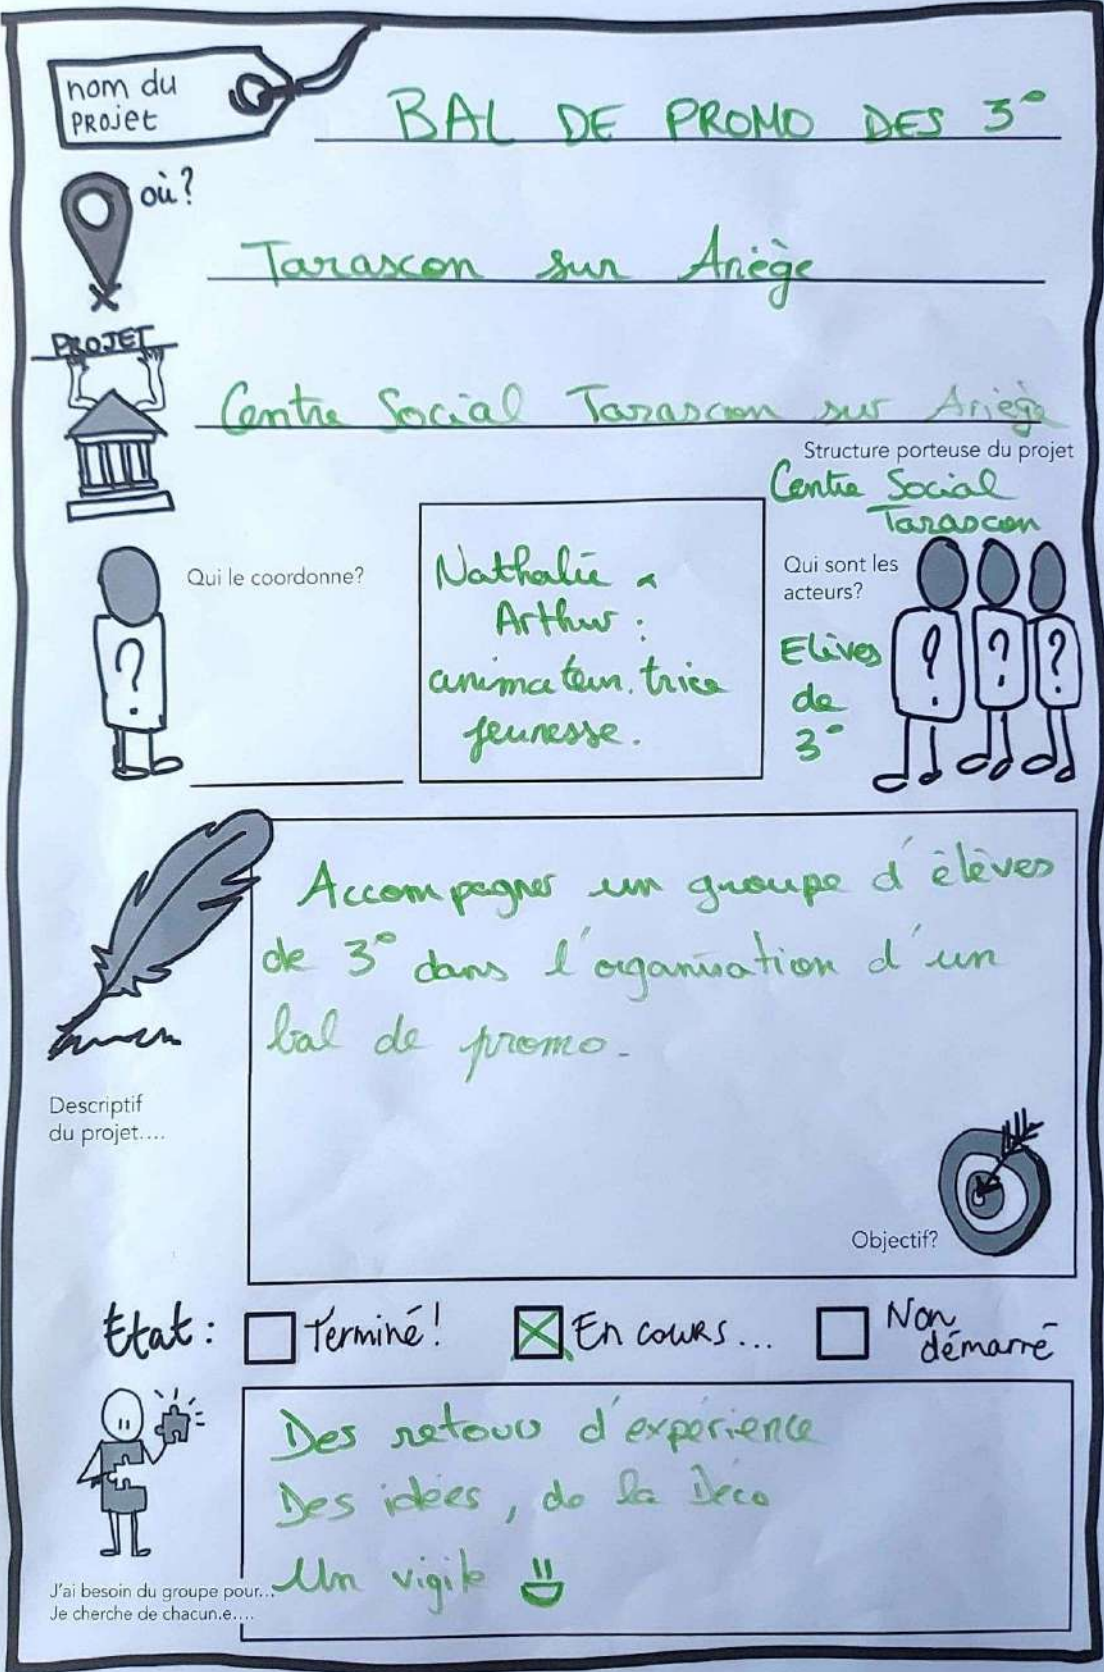 nom du
PROJET
BAL DE PROMO DES 3°
où?
Tarascon sur Ariège
PROJET
Centre Social Tarascon sur Ariège
Structure porteuse du projet
Centre Social
Tarascon
Qui le coordonne?
Nathalie &
Arthur :
animateur.trice
jeunesse.
Qui sont les
acteurs?
Elèves
de
3°
? ? ? ?
Accompagner un groupe d'élèves
de 3° dans l'organisation d'un
bal de promo.
Descriptif
du projet....
Objectif?
Etat :
Terminé!
En cours...
Non
démarré
Des retours d'expérience
Des idées, de la Déco
Un vigile
J'ai besoin du groupe pour...
Je cherche de chacun.e....